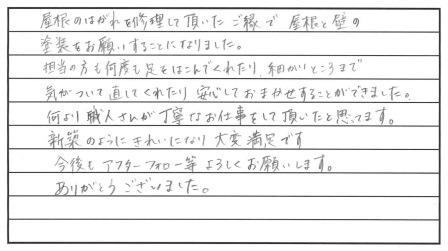 屋根のはがれを修理して頂いたご縁で 屋根と壁の
塗装をお願いすることになりました。
担当の方も何度も足をはこんでくれたり、細かいところまで
気がついて直してくれたり 安心しておまかせすることができました。
何より職人さんが丁寧なお仕事をして頂いたと思ってます。
新築のようにきれいになり大変満足です
今後もアフターフォロー等よろしくお願いします。
ありがとうございました。